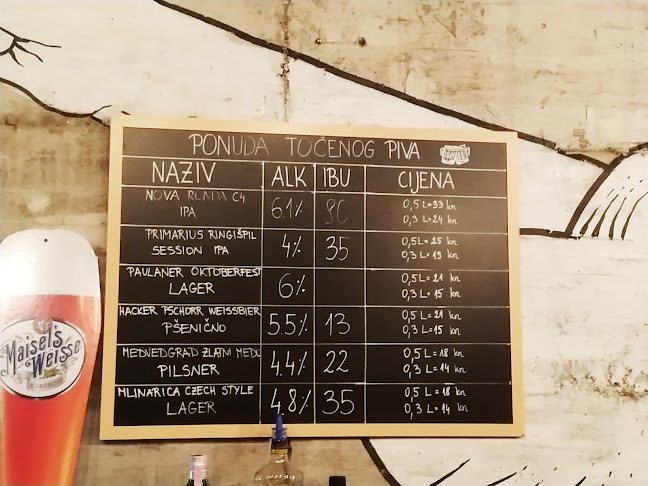 PONUDA TOČENOG PIVA
NAZIV ALK IBU CIJENA
NOVA RUNDA C4
IPA
6.1%
0,5 L=33 kn
0,3 L=24 kn
PRIMARIUS RINGIŠPIL
SESSION IPA
4%
35
0,5 L=25 kn
0,3 L=19 kn
PAULANER OKTOBERFEST
LAGER
6%
0,5 L=21 kn
0,3 L=15 kn
HACKER PSCHORR WEISSBIER
PŠENIČNO
5.5%
13
0,5 L=21 kn
0,3 L=15 kn
MEDVEDGRAD ZLATNI MEDO
PILSNER
4.4%
22
0,5 L=18 kn
0,3 L=14 kn
MLINARICA CZECH STYLE
LAGER
4.8%
35
0,5 L=18 kn
0,3 L=14 kn
Maisel's
Weisse